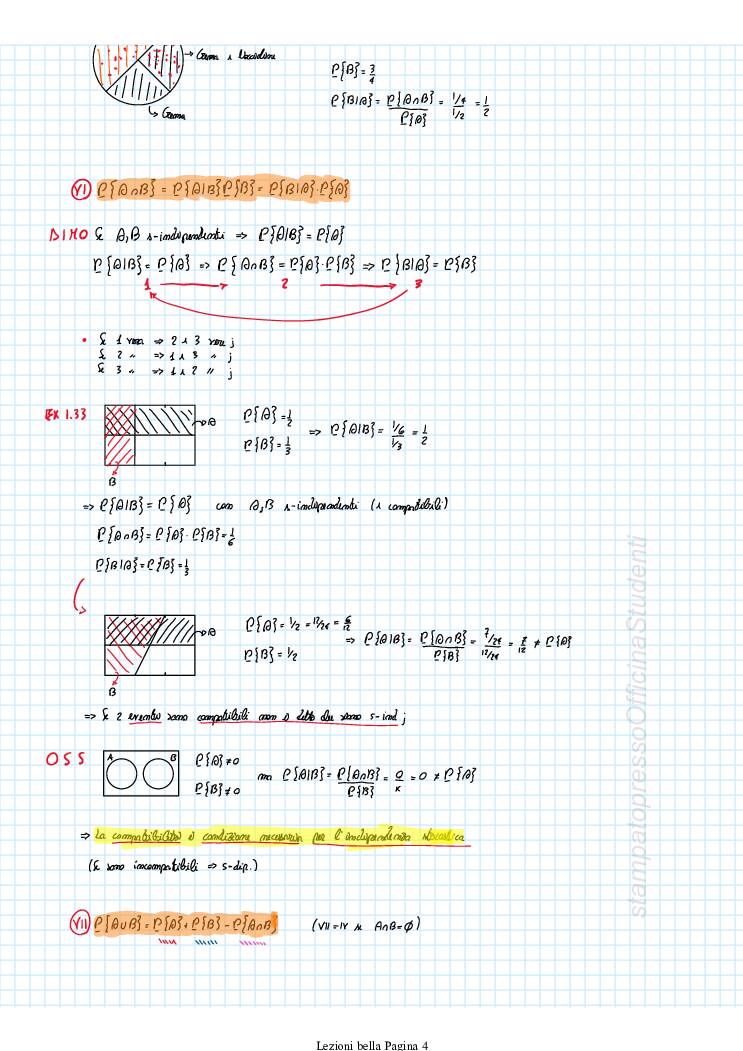 → Gomma e
↳ Gomma
P{B} = 3/4
P{B|A} = P{A∩B}/P{A} = 1/4 / 1/2 = 1/2
VI P{A∩B} = P{A|B}P{B} = P{B|A}·P{A}
DIMO Se A,B s-indipendenti ⇒ P{A|B} = P{A}
P{A|B} = P{A} ⇒ P{A∩B} = P{A}·P{B} ⇒ P{B|A} = P{B}
1 → 2 → 3
• Se 1 vera ⇒ 2 e 3 vere ;
Se 2 " ⇒ 1 e 3 " ;
Se 3 " ⇒ 1 e 2 " ;
EX 1.33
→ A
B
P{A} = 1/2
P{B} = 1/3
⇒ P{A|B} = 1/6 / 1/3 = 1/2
⇒ P{A|B} = P{A} con A,B s-indipendenti (e compatibili)
P{A∩B} = P{A}·P{B} = 1/6
P{B|A} = P{B} = 1/3
→ A
B
P{A} = 1/2 = 12/24 = 6/12
P{B} = 1/2
⇒ P{A|B} = P{A∩B}/P{B} = 7/24 / 12/24 = 7/12 ≠ P{A}
⇒ Se 2 eventi sono compatibili non è detto che sono s-ind ;
OSS
A B
P{A} ≠ 0
P{B} ≠ 0
ma P{A|B} = P{A∩B}/P{B} = 0/k = 0 ≠ P{A}
⇒ La compatibilità è condizione necessaria per l'indipendenza stocastica
(Se sono incompatibili ⇒ s-dip.)
VII P{A∪B} = P{A} + P{B} - P{A∩B} (VII = IV se A∩B = ∅)
stampatopressoOfficinaStudenti
Lezioni bella Pagina 4